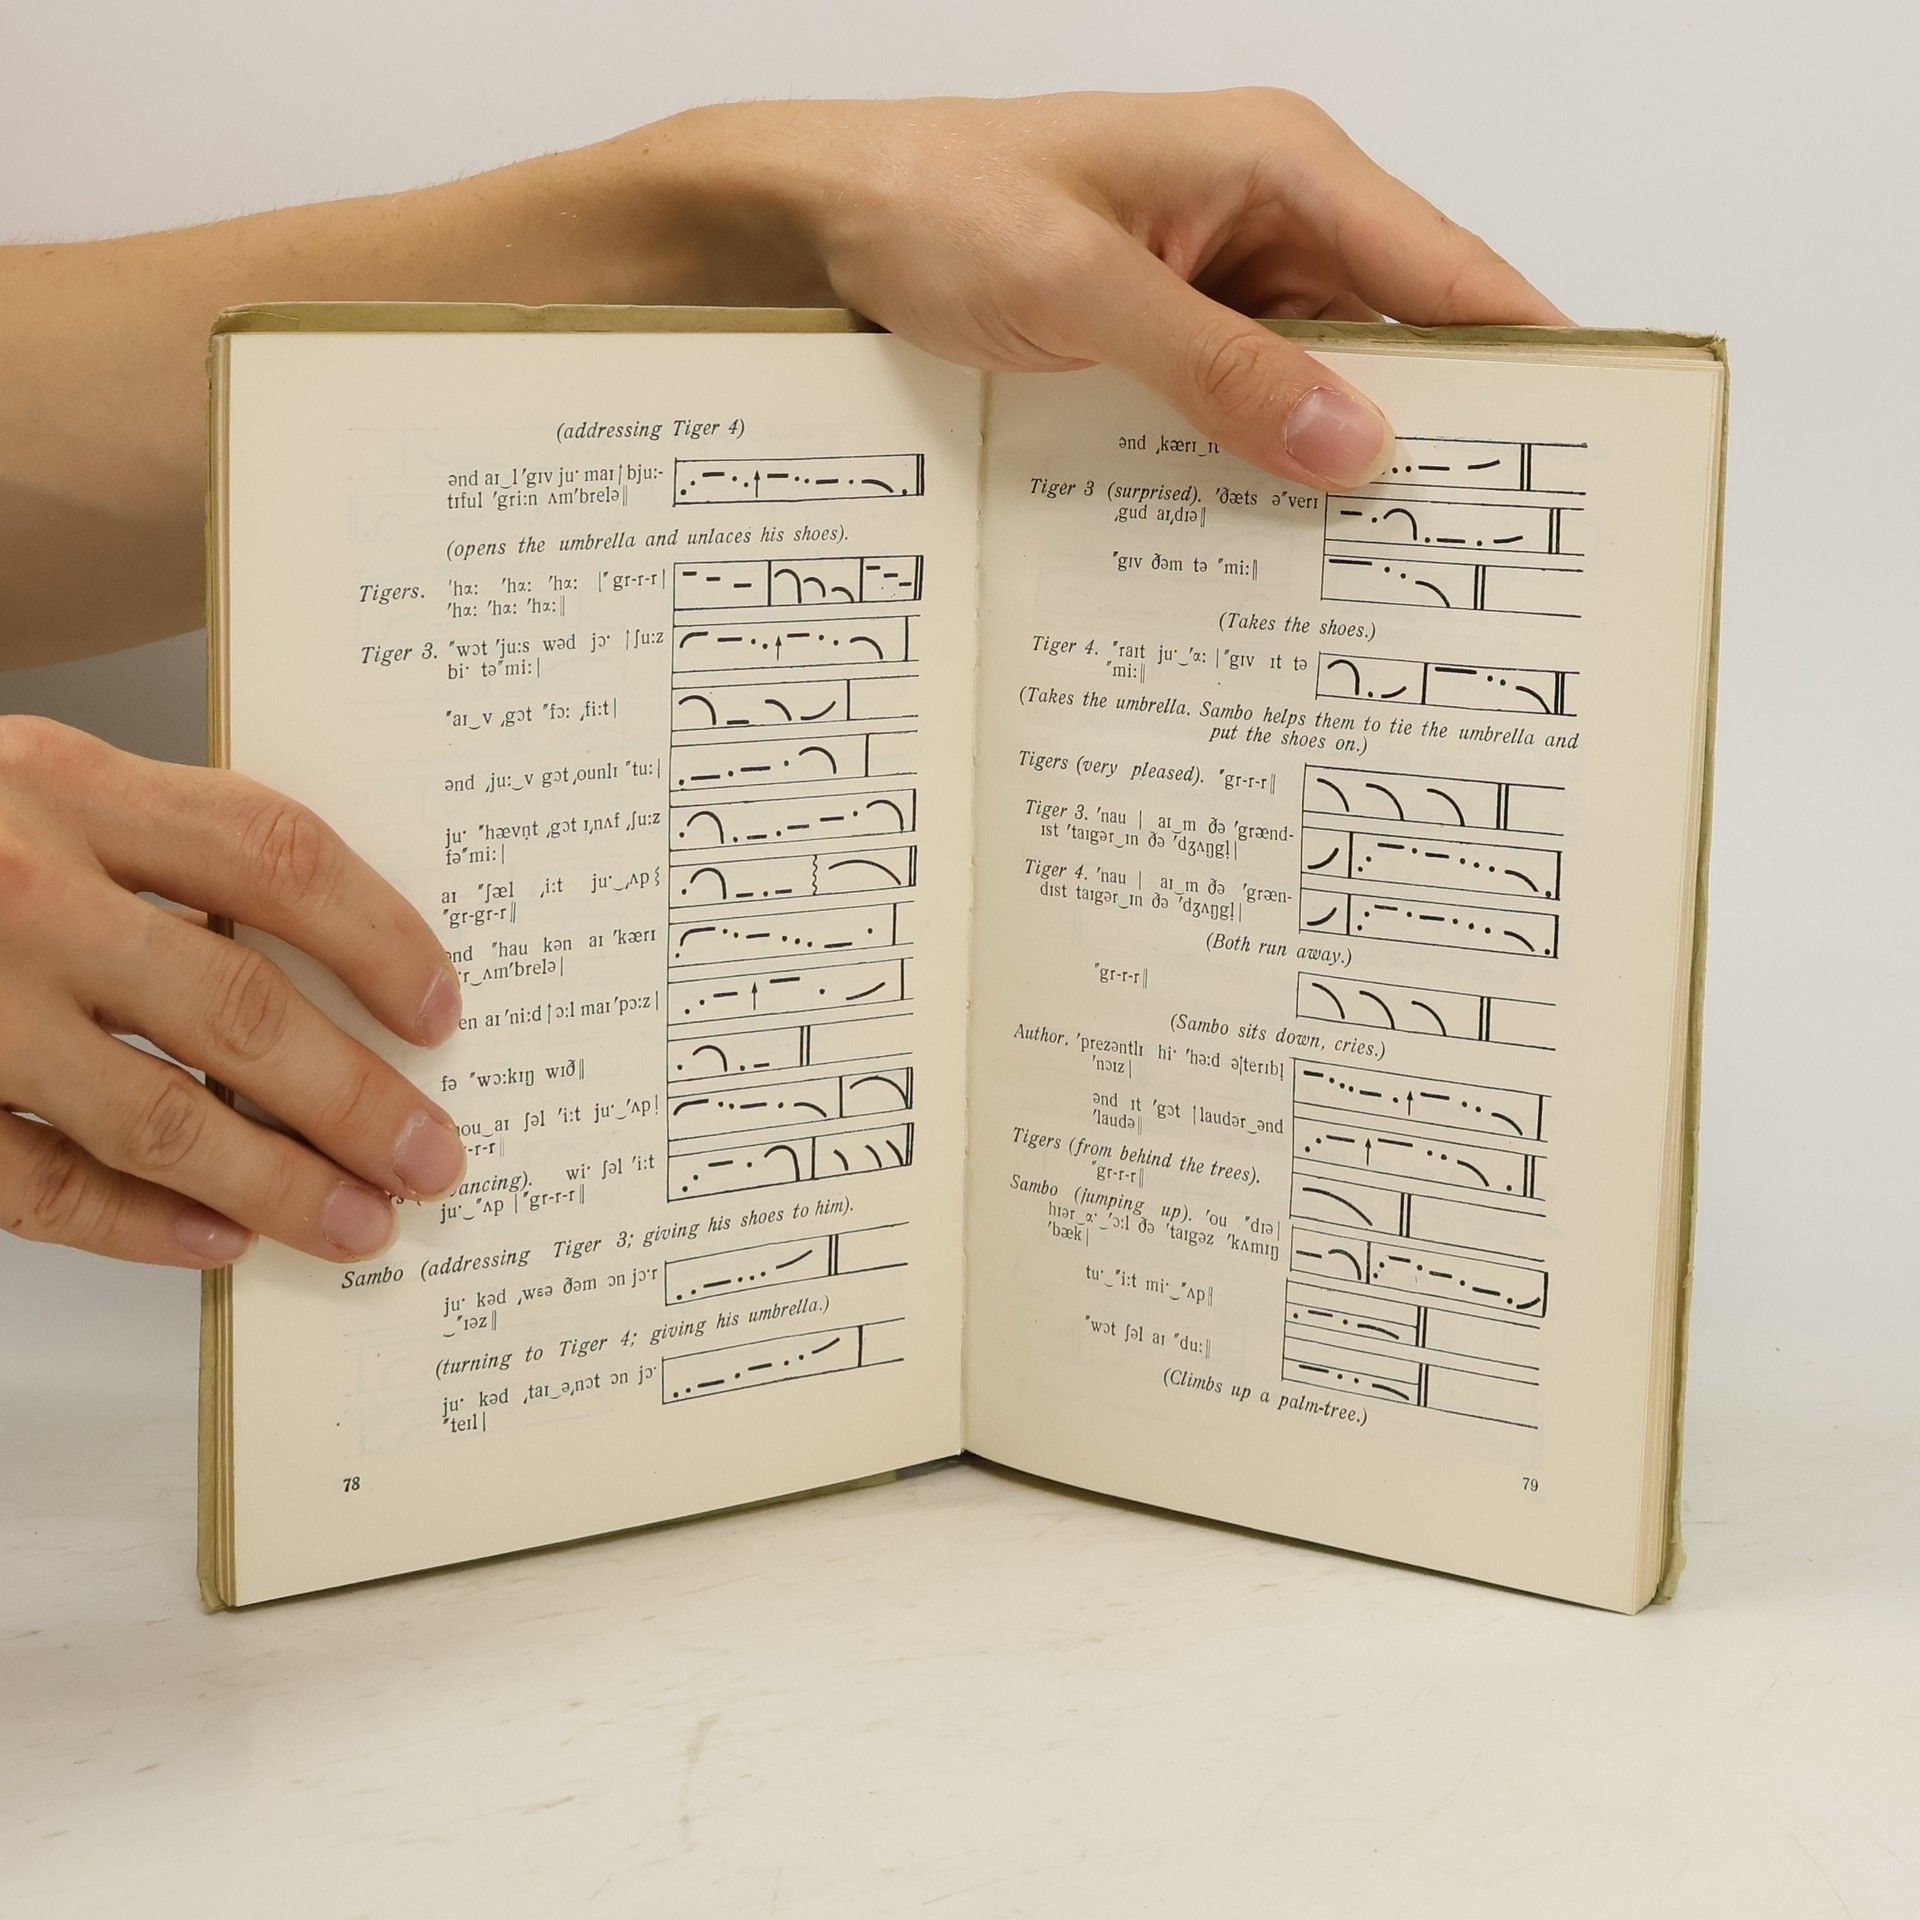 (addressing Tiger 4)
ənd aɪ‿l 'gɪv ju· maɪ↑bju:-
tɪful 'gri:n ʌm'brelə‖
(opens the umbrella and unlaces his shoes).
Tigers. 'hɑ: 'hɑ: 'hɑ: |"gr-r-r|
'hɑ: 'hɑ: 'hɑ:‖
Tiger 3. "wɔt 'ju:s wəd jɔ· ↑ʃu:z
bi· tə"mi:|
"aɪ‿v ˌgɔt "fɔ: ˌfi:t|
ənd ˌju:‿v gɔtˌounlɪ "tu:|
ju· "hævn̩t ˌgɔt ɪˌnʌf ˌʃu:z
fə"mi:|
aɪ "ʃæl ˌi:t ju·‿ˌʌp⸾
"gr-gr-r‖
"hau kən aɪ 'kærɪ
ʌm'brelə|
aɪ 'ni:d↑ɔ:l maɪ 'pɔ:z|
fə "wɔ:kɪŋ wɪð‖
aɪ ʃəl 'i:t ju·‿'ʌp|
wi· ʃəl 'i:t
ju·‿"ʌp |"gr-r-r‖
Sambo (addressing Tiger 3; giving his shoes to him).
ju· kəd ˌwɛə ðəm ɔn jɔ·r
‿"ɪəz‖
(turning to Tiger 4; giving his umbrella.)
ju· kəd ˌtaɪ‿əˌnɔt ɔn jɔ·
"teɪl|
78
ənd ˌkærɪ‿ɪt
Tiger 3 (surprised). 'ðæts ə"verɪ
ˌgud aɪˌdɪə‖
"gɪv ðəm tə "mi:‖
(Takes the shoes.)
Tiger 4. "raɪt ju·‿'ɑ: |"gɪv ɪt tə
"mi:‖
(Takes the umbrella. Sambo helps them to tie the umbrella and
put the shoes on.)
Tigers (very pleased). "gr-r-r‖
Tiger 3. 'nau | aɪ‿m ðə 'grænd-
ɪst 'taɪgər‿ɪn ðə 'dʒʌŋgl̩|
Tiger 4. 'nau | aɪ‿m ðə 'græn-
dɪst taɪgər‿ɪn ðə 'dʒʌŋgl̩|
(Both run away.)
"gr-r-r‖
(Sambo sits down, cries.)
Author. 'prezəntlɪ hi· 'hə:d ə↑terɪbl̩
'nɔɪz|
ənd ɪt 'gɔt ↑laudər‿ənd
'laudə‖
Tigers (from behind the trees).
"gr-r-r‖
Sambo (jumping up). 'ou "dɪə|
hɪər‿ɑ·‿'ɔ:l ðə 'taɪgəz 'kʌmɪŋ
'bæk|
tu·‿"i:t mi·‿"ʌp‖
"wɔt ʃəl aɪ "du:‖
(Climbs up a palm-tree.)
79